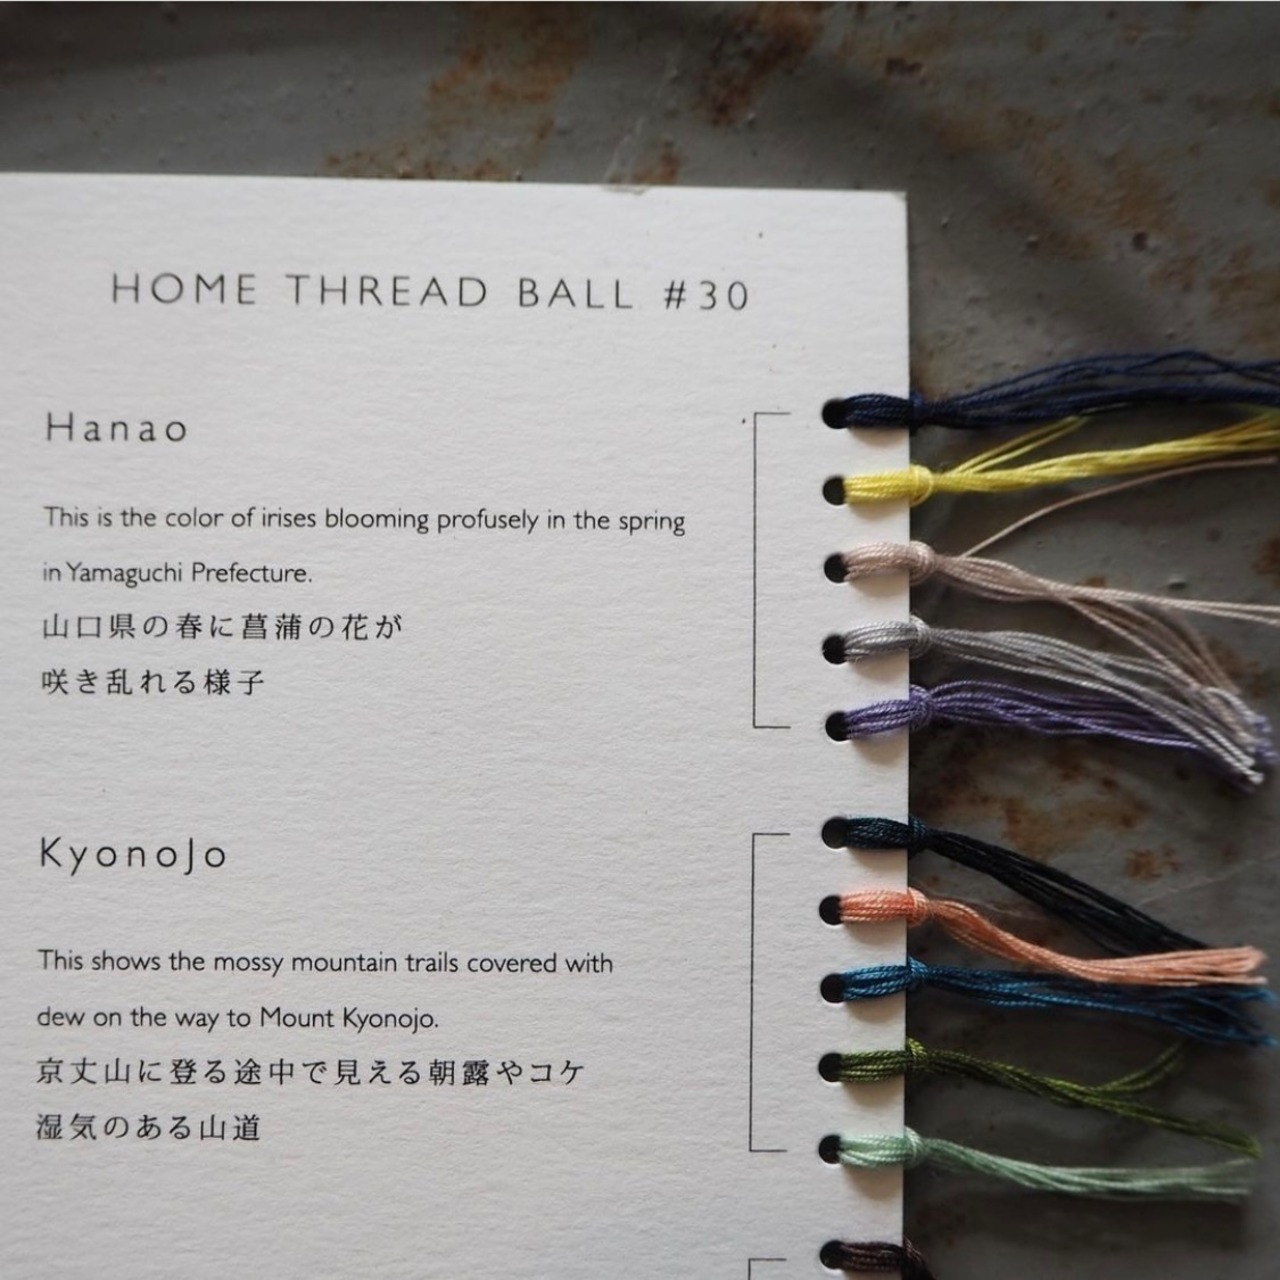 HOME THREAD BALL #30
Hanao
This is the color of irises blooming profusely in the spring
in Yamaguchi Prefecture.
山口県の春に菖蒲の花が
咲き乱れる様子
KyonoJo
This shows the mossy mountain trails covered with
dew on the way to Mount Kyonojo.
京丈山に登る途中で見える朝露やコケ
湿気のある山道